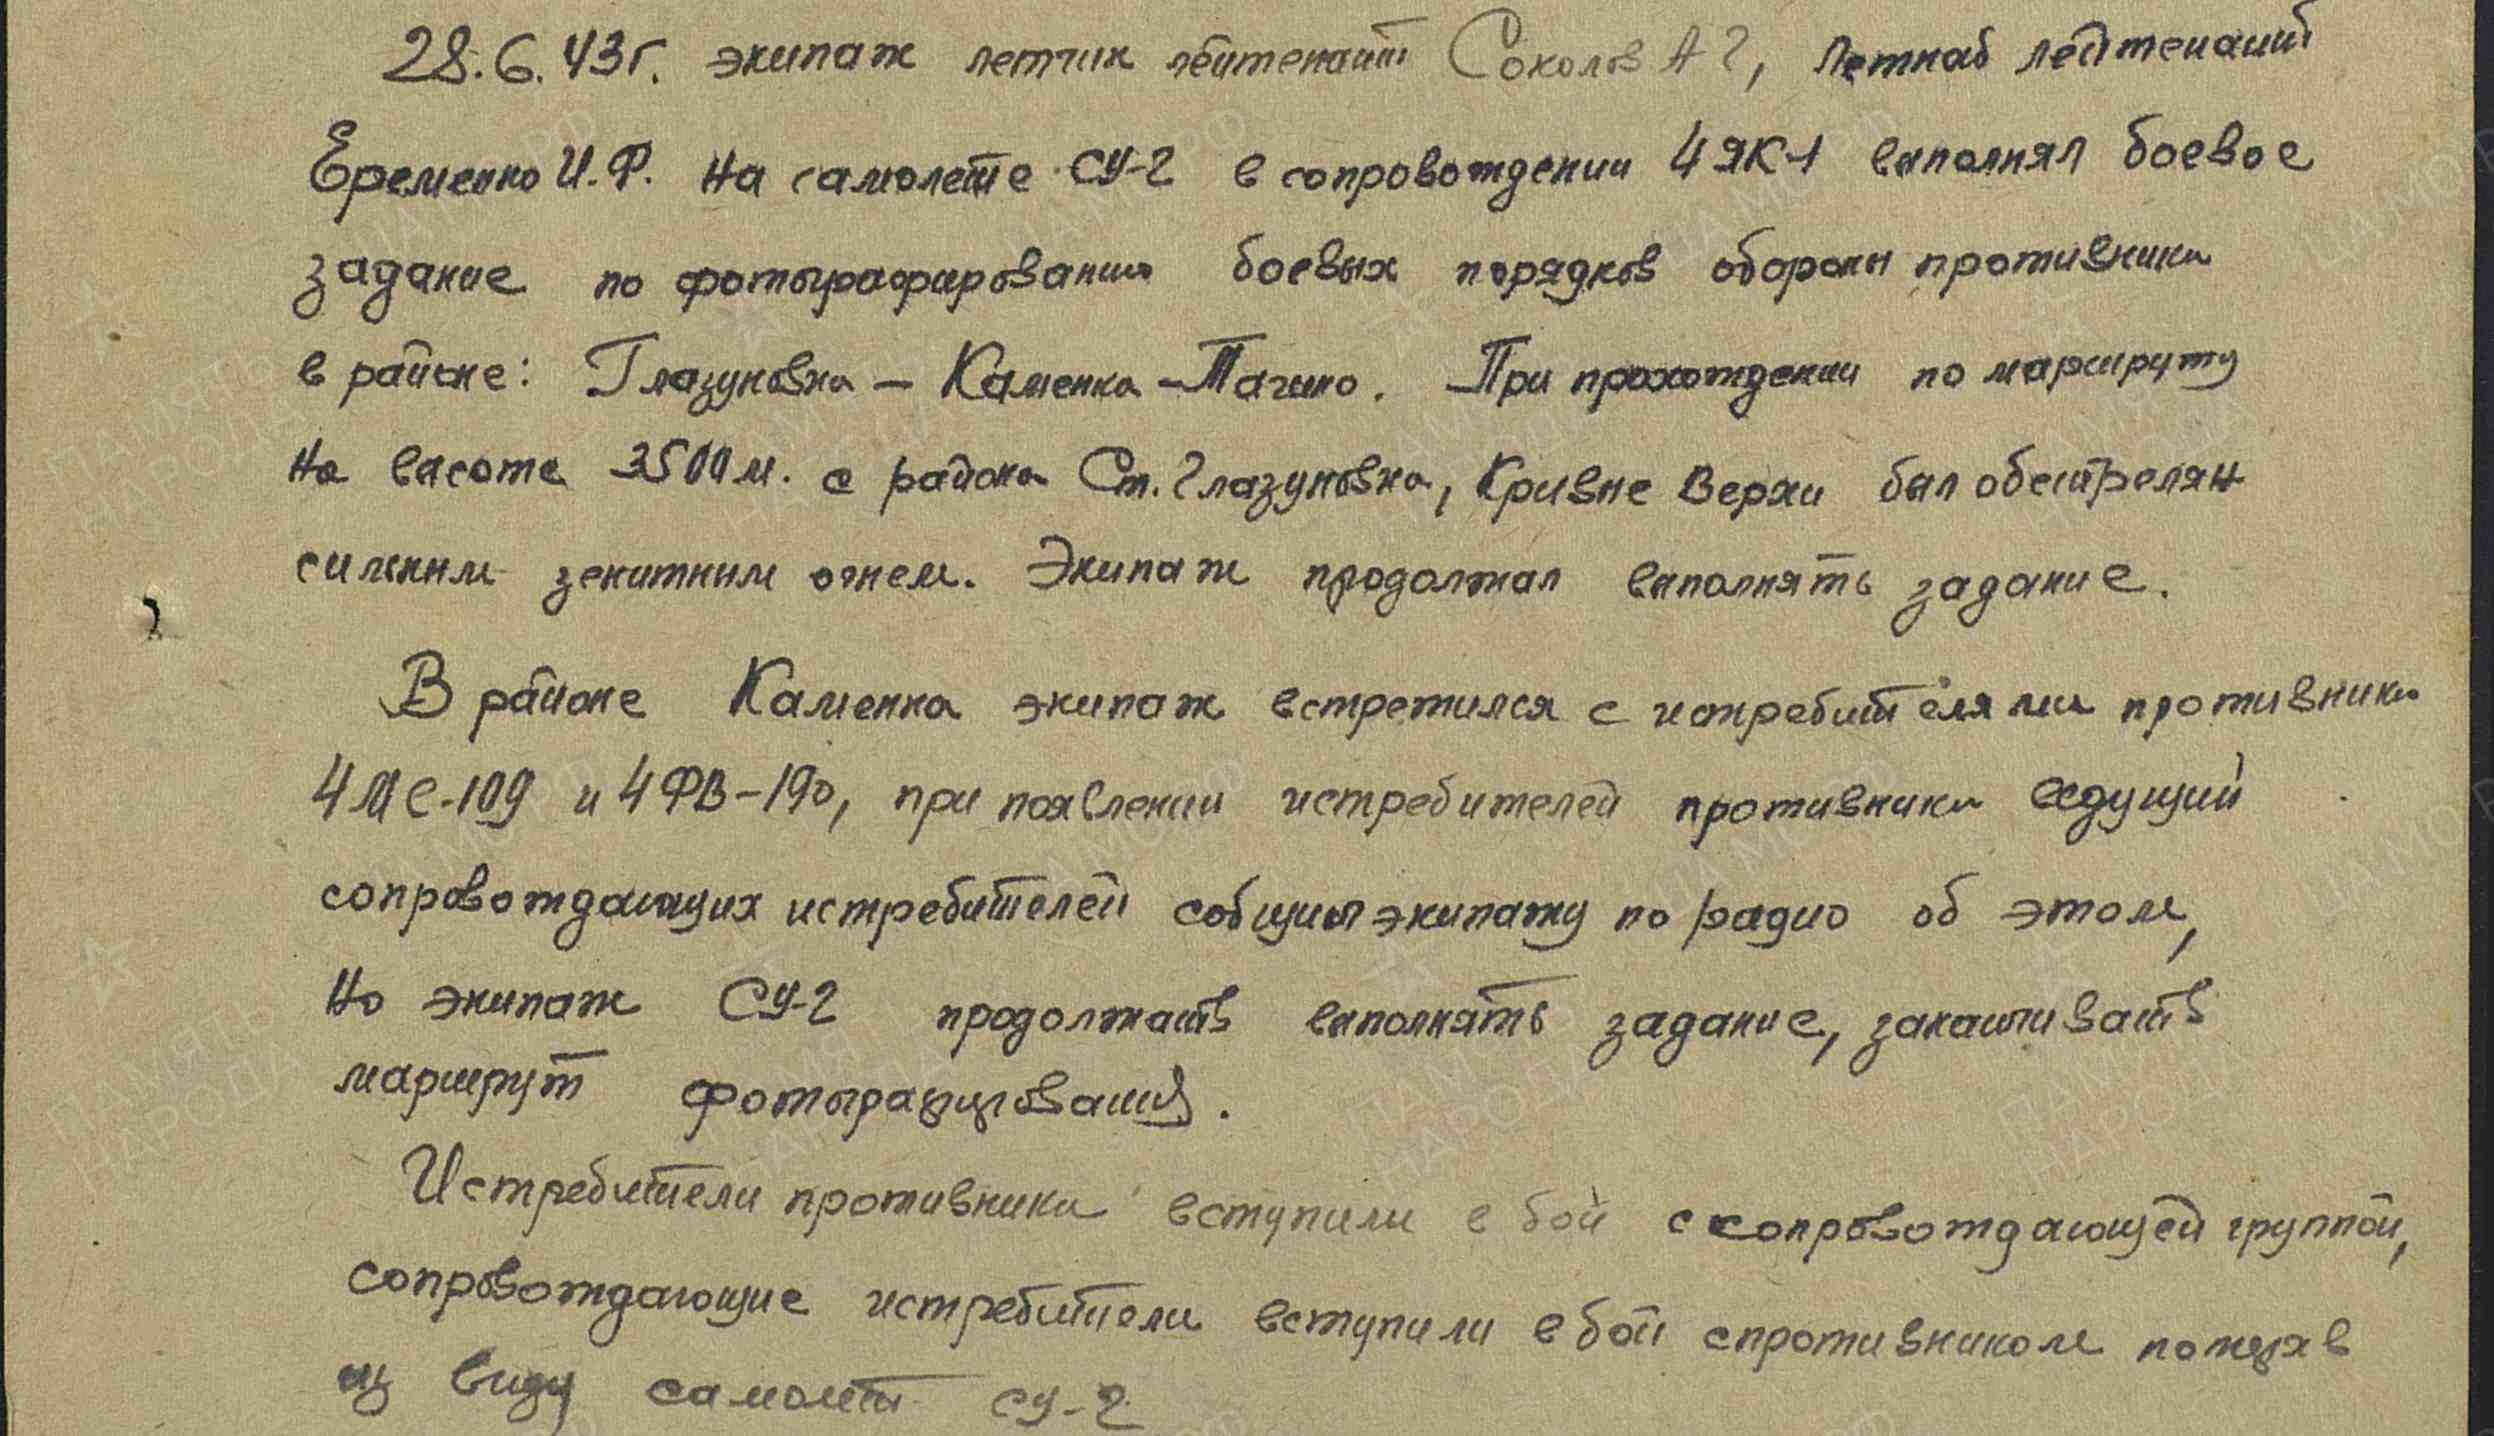 28.6.43г. экипаж летчик лейтенант Соколов А Г, Летнаб лейтенант
Еременко И.Ф. на самолете СУ-2 в сопровождении 4 ЯК-1 выполнял боевое
задание по фотографированию боевых порядков обороны противника
в районе: Глазуновка – Каменка – Тагино. При прохождении по маршруту
на высоте 3500 м. с района Ст. Глазуновка, Кривые Верхи был обестрелян
сильным зенитным огнем. Экипаж продолжал выполнять задание.
В районе Каменка экипаж встретился с истребителями противника
4 МЕ-109 и 4 ФВ-190, при появлении истребителей противника ведущий
сопровождающих истребителей собщил экипажу по радио об этом,
но экипаж СУ-2 продолжать выполнять задание, заканчивать
маршрут фотографирования.
Истребители противника вступили в бой с сопровождающей группой,
сопровождающие истребители вступили в бой спротивником потеряв
из виду самолет СУ-2
ПАМЯТЬ НАРОДА
ЦАМО РФ